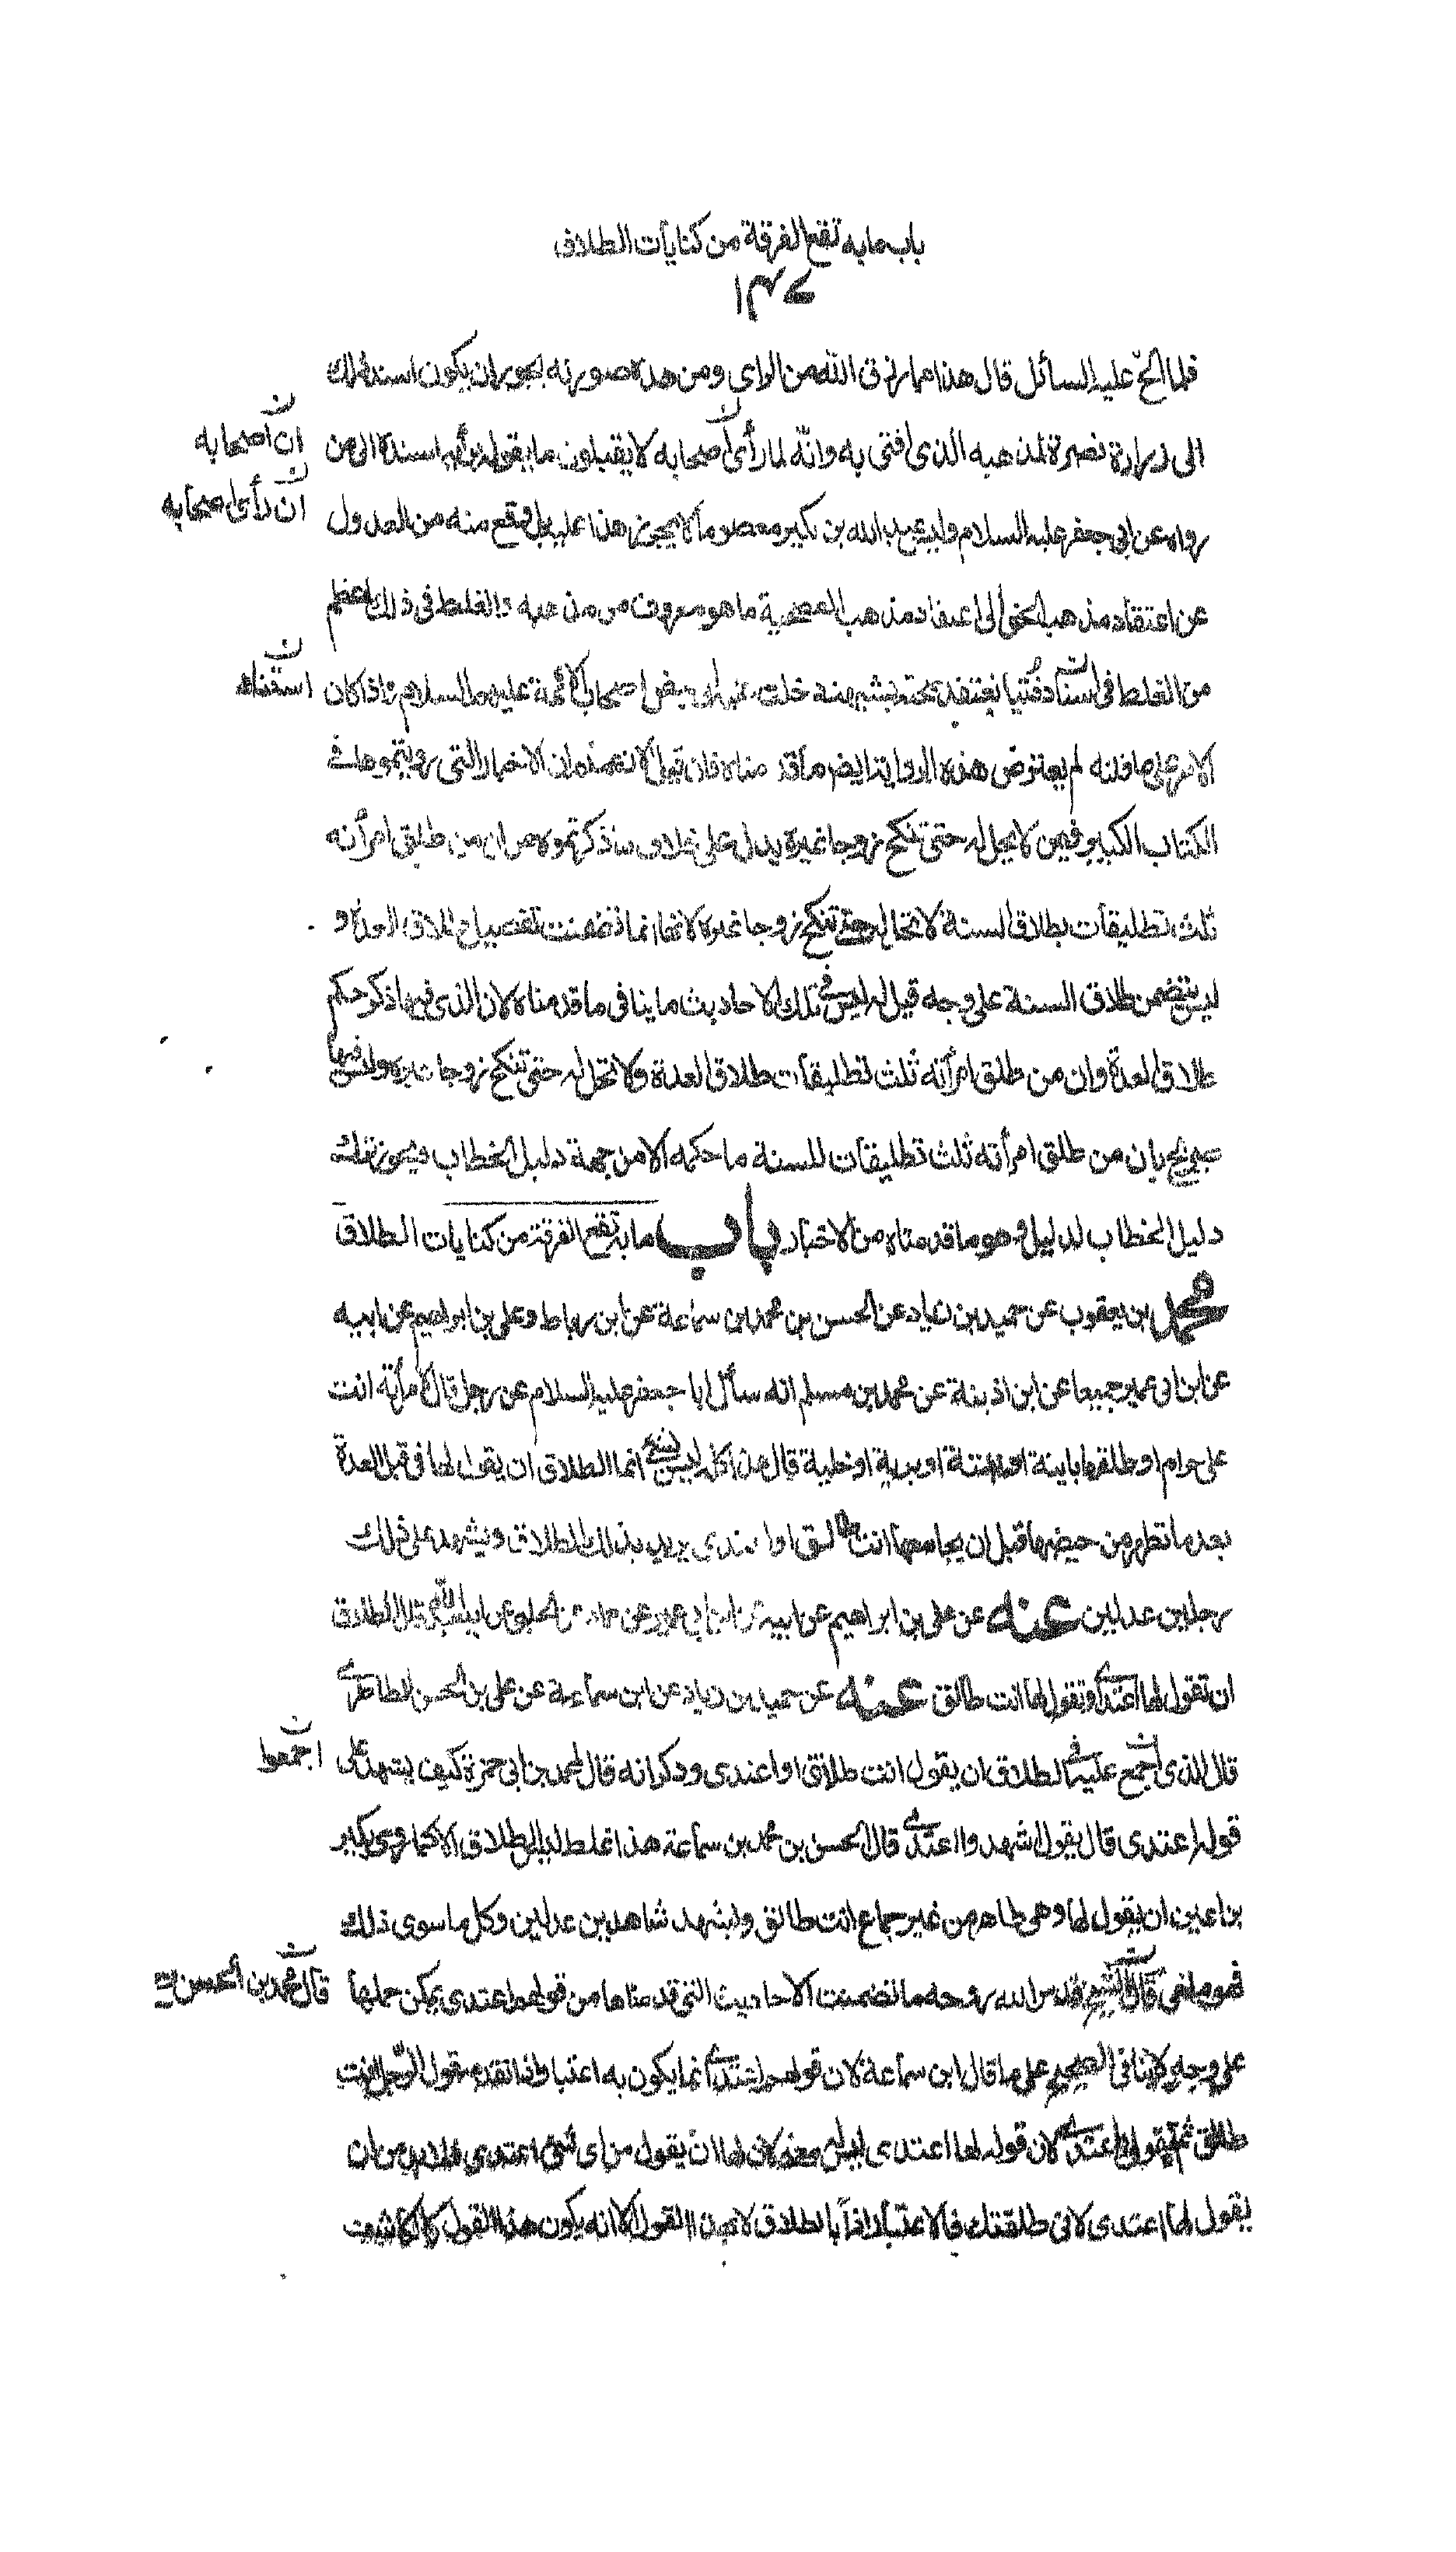 باب ما به تقع الفرقة من كنايات الطلاق
فلما الح عليه السائل قال هذا مما رزق الله من الراى ومن هذه صورته يجوز ان يكون اسند ذلك
الى زرارة نصرة لمذهبه الذى افتى به وانّه لما رأى اصحابه لا يقبلون ما يقوله برأيه اسنده الى من
ان اصحابه
ان رأى اصحابه
رواه عن ابى جعفر عليه السلام وليس عبد الله بن بكير معصوما لا يجوز هذا عليه بل وقع منه من العدول
عن اعتقاد مذهب الحق الى اعتقاد مذهب الفطحية ما هو معروف من مذهبه والغلط فى ذلك اعظم
من الغلط فى اسناد فتيا يعتقد صحته بشبهة دخلت عليه الى بعض اصحاب الائمة عليهم السلام واذا كان
الامر على ما قلنه لم يعترض هذه الرواية ايضا ما قدمناه فان قيل الا زعمتم ان الاخبار التى رويتموها فى
الكتاب الكبير فيمن لا يحل له حتى تنكح زوجا غيره يدل على خلاف ما ذكرتموه من ان من طلق امرأته
ثلث تطليقات بطلاق السنة لا تحل له حتى تنكح زوجا غيره لانها انما تضمنت تفصيل طلاق العدة و
ليس يتضمن طلاق السنة على وجه قيل له ليس فى تلك الاحاديث ما ينافى ما قدمناه لان الذى فيها ذكر حكم
طلاق العدة وان من طلق امرأته ثلث تطليقات طلاق العدة ولا تحل له حتى تنكح زوجا غيره وليس فيها
صريح بان من طلق امرأته ثلث تطليقات للسنة ما حكمه الا من جهة دليل الخطاب ويجوز ترك
دليل الخطاب لدليل وهو ما قدمناه من الاخبار باب ما به تقع الفرقة من كنايات الطلاق
محمد بن يعقوب عن حميد بن زياد عن الحسن بن محمد بن سماعة عن ابن رباط وعلى بن ابراهيم عن ابيه
عن ابن ابى عمير جميعا عن ابن اذينة عن محمد بن مسلم انه سأل ابا جعفر عليه السلام عن رجل قال لامرأته انت
على حرام او طلقها باينة او بتة او برية او خلية قال هذا كله ليس بشئ انما الطلاق ان يقول لها فى قبل العدة
بعد ما تطهر من حيضها قبل ان يجامعها انت طالق او اعتدى يريد بذلك الطلاق ويشهد على ذلك
رجلين عدلين عنه عن على بن ابراهيم عن ابيه عن ابن ابى عمير عن حماد عن الحلبى عن ابى عبد الله قال الطلاق
ان تقول لها اعتدى او تقول لها انت طالق عنه عن حميد بن زياد عن ابن سماعة عن على بن الحسن الطاطرى
قال الذى اجمع عليه فى الطلاق ان يقول انت طالق او اعتدى وذكر انه قال لمحمد بن ابى حمزة كيف يشهد على
اجمعوا
قوله اعتدى قال يقول اشهدوا اعتدى قال الحسن بن محمد بن سماعة هذا غلط ليس الطلاق الا كما روى بكير
بن اعين ان يقول لها وهى طاهر من غير جماع انت طالق ويشهد شاهدين عدلين وكل ما سوى ذلك
فهو ملغى قال الشيخ قدس الله روحه ما تضمنت الاحاديث التى قدمناها من قولهم اعتدى يمكن حملها
قال محمد بن الحسن
على وجه لا ينافى الصحيح على ما قال ابن سماعة لان قولهم اعتدى انما يكون به اعتبار اذا تقدمه قول الرجل انت
طالق ثم يقول اعتدى لان قوله لها اعتدى ليس معنى لان لها ان يقول من اى شئ اعتدى فلا بد من ان
يقول لها اعتدى لانى طلقتك فالاعتبار اذا بالطلاق لا بهذا القول الا انه يكون هذا القول كالكاشف